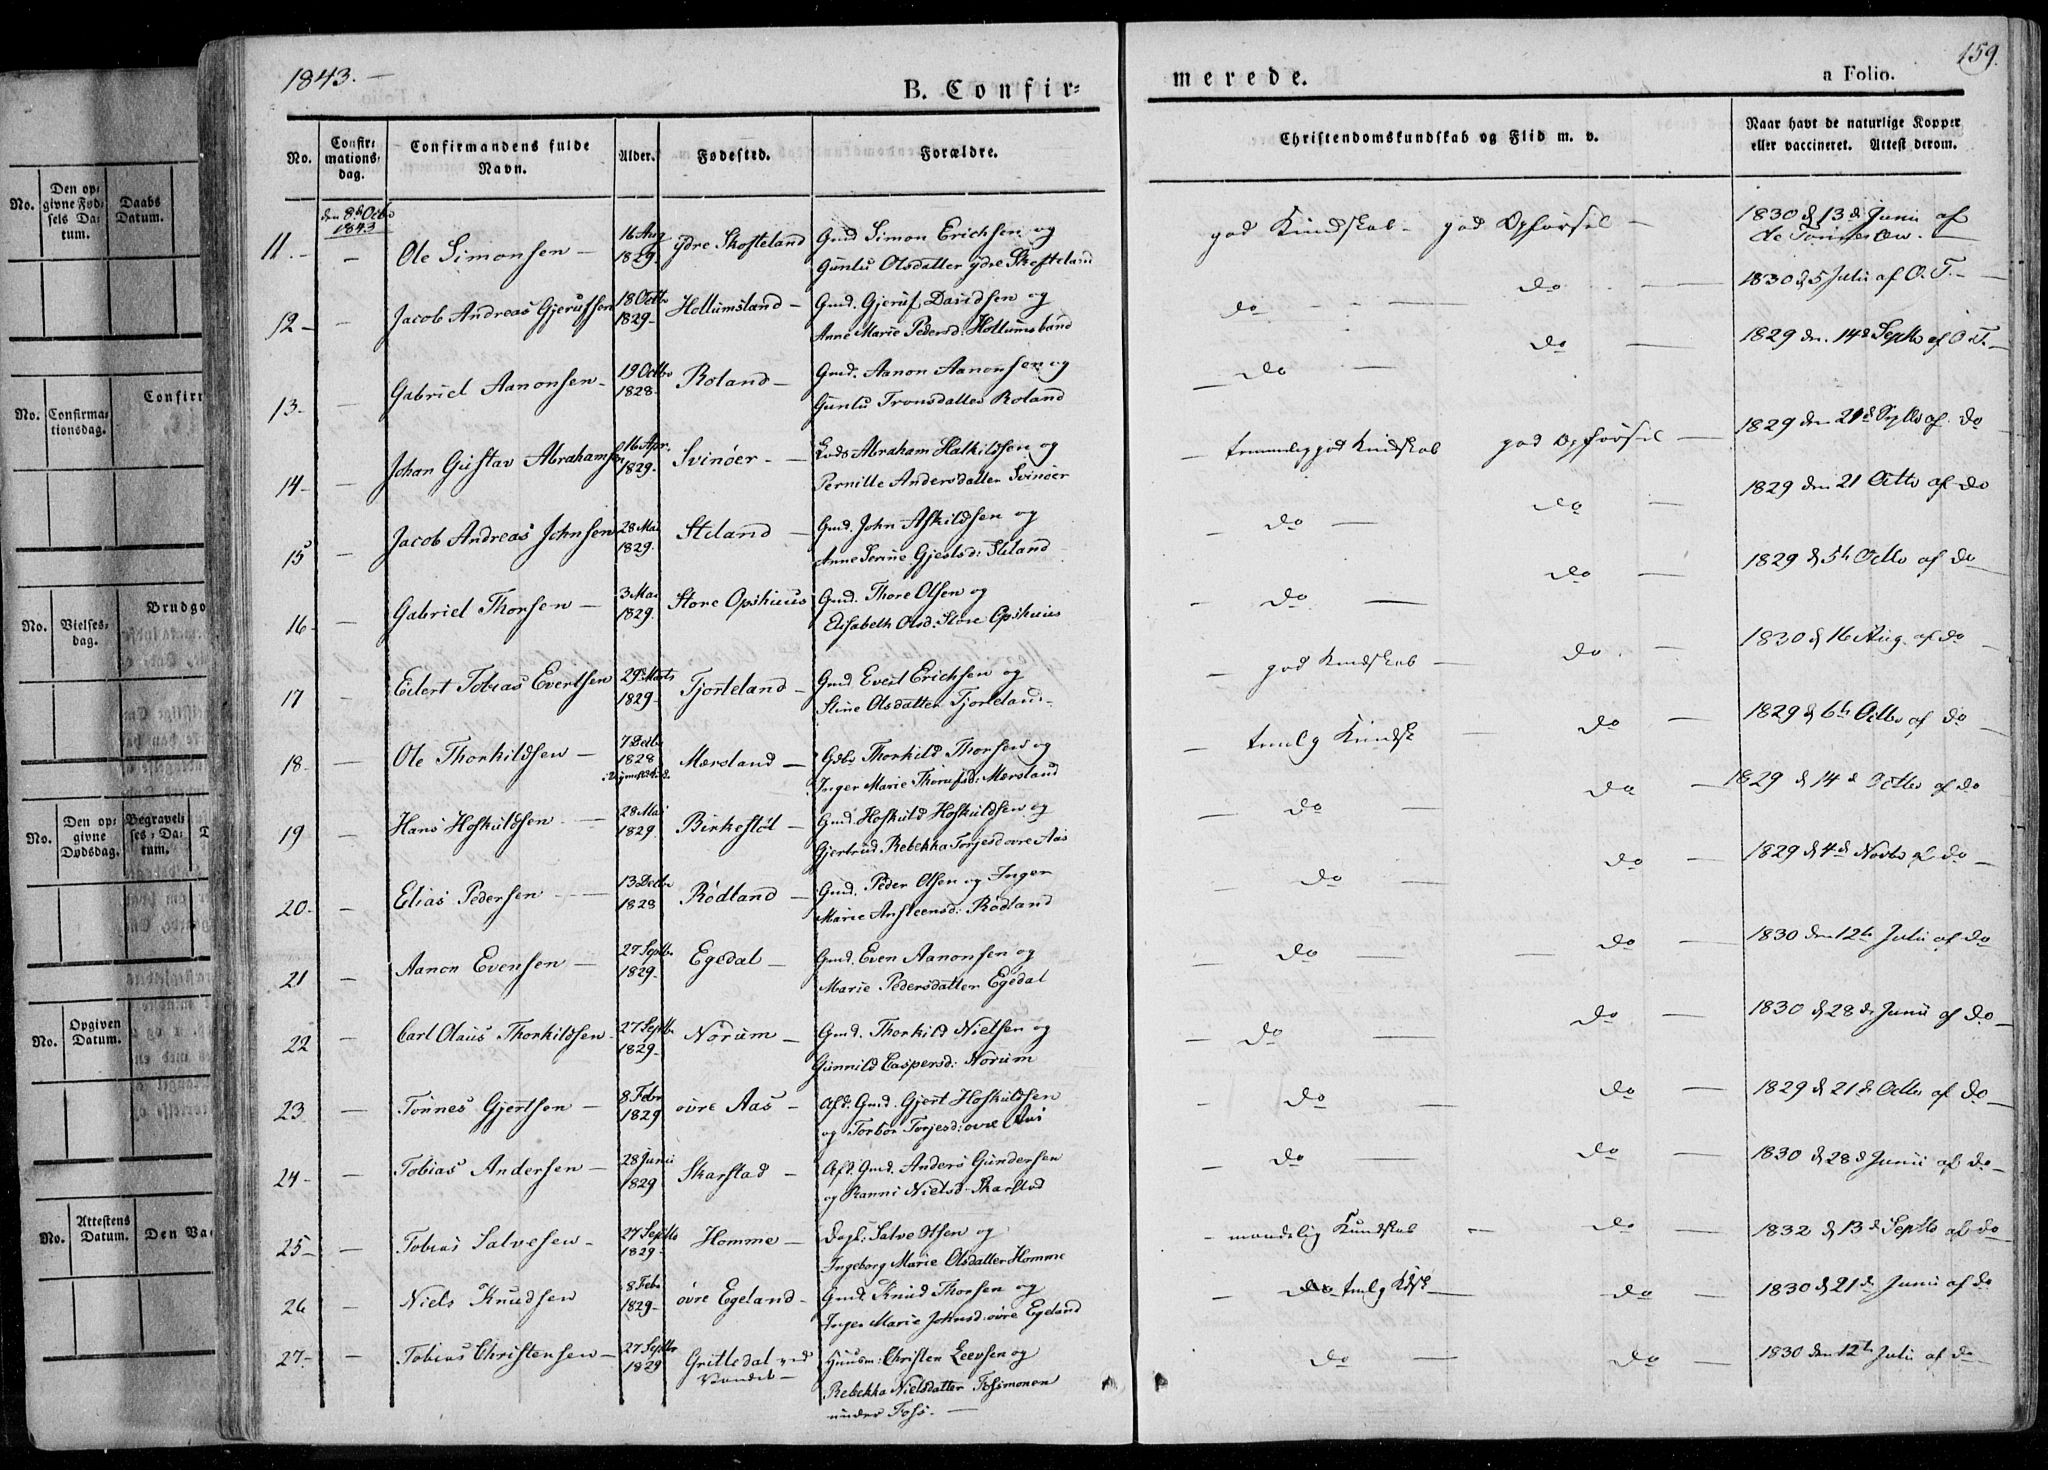 1843. —
B. Confir-
merede.
a Folio.
159.
No. Confirmationsdag. Confirmandens fulde Navn. Alder. Fødested. Forældre. Christendomskundskab og Flid m. v. Naar havt de naturlige Kopper eller vaccineret. Attest derom.
den 8de Octbr 1843
11. — Ole Simonsen — 16 Aug 1829. ydre Skofteland Gmd Simon Erichsen og Gunlu Olsdatter ydre Skofteland god Kundskab — god Opførsel — 1830 d 13de Junii af Ole Tønnesen. —
12 — Jacob Andreas Gjerufsen 18 Octbr 1829 — Hollumsland — Gmd. Gjeruf Davidsen og Anne Marie Pedersd: Hollumsland do — do — 1830 d 5 Julii af O. T. —
13. — Gabriel Aanonsen — 19 Octbr 1828 — Roland — Gmd. Aanon Aanonsen og Gunlu Tronsdatter Roland — do — do — 1829 den 14de Septbr af O. T. —
14 — Johan Gustav Abrahamsen 16 Apr. 1829. Svinøer — Lods Abraham Halkildsen og Pernille Andersdatter Svinøer — temmelig god Kundskab god Opførsel — 1829 den 21de Septbr af do
15 — Jacob Andreas Johnsen 28 Mai 1829. Stiland — Gmd. John Askildsen og Anne Serine Gjestsd: Stiland — do — do — 1829 den 21 Octbr af do
16 — Gabriel Thorsen — 3 Mai 1829. Store Opshuus Gmd. Thore Olsen og Elisabeth Olsd: Store Opshuus — do — do — 1829 d 5te Octbr af do
17 — Eilert Tobias Evertsen 29 Marts 1829 — Tjorteland — Gmd Evert Erichsen og Stine Olsdatter Tjorteland — — god Kundskab — do — 1830 d 16 Aug. af do —
18. — Ole Thorkildsen — 7 Decbr 1828 Mærsland — Gdbr Thorkild Thorsen og Inger Marie Thorufsd: Mærsland — temlg Kundsk — do — 1829 d 6te Octbr af do
19 — Hans Hoskuldsen — 28 Mai 1829. Birkestøl — Gmd. Hoskuld Hoskuldsen og Gjertrud Rebekka Torjesd øvre Aas — do — do — 1829 d 14de Octbr af do
20. — Elias Pedersen — 13 Decbr 1828 Rødland — Gmd. Peder Olsen og Inger Marie Ansteensd: Rødland — do — do — 1829 d 4de Novbr af do —
21 — Aanon Evensen — 27 Septbr 1829. Egedal — Gmd. Even Aanonsen og Marie Pedersdatter Egedal — do — do — 1830 den 12te Julii af do
22 — Carl Olaus Thorkildsen. 27 Septbr 1829 — Norum — Gmd. Thorkild Nielsen og Gunnild Caspersd: Norum — do — do — 1830 d 28de Junii af do —
23 — Tønnes Gjertsen — 8 Febr 1829 øvre Aas — Afd. Gmd. Gjert Hoskuldsen og Torbor Torjesd: øvre Aas — do — do — 1829 d 21de Octbr af do —
24 — Tobias Andersen — 28 Junii 1829 Skarstad — Afd. Gmd. Anders Gundersen og Ranni Nielsd: Skarstad — do — do — 1830 d 28d Junii af do —
25 — Tobias Salvesen — 27 Septbr 1829 — Homme — Dagl: Salve Olsen og Ingeborg Marie Olsdatter Homme — maadelig Kundskab — do — 1832 d 13d Septbr af do —
26 — Niels Knudsen 8 Febr 1829 — øvre Egeland — Gmd. Knud Thorsen og Inger Marie Johnsd: øvre Egeland — do temlg Kdsk — do — 1830 d 21de Junii af do
27. — Tobias Christensen — 27 Septbr 1829 Grittedal ved Vandet — Huusm: Christen Leevsen og Rebekka Nielsdatter Fossmonen under Foss. — do — do — 1830 den 12te Julii af do —
No. Den opgivne Fødsels Datum. Daabs Datum.
No. Confirmationsdag. Confirm
No. Vielsesdag. Brudgo
No. Den opgivne Dødsdag. Begravelses-Datum.
No. Opgiven Datum.
No. Attestens Datum. Den Va